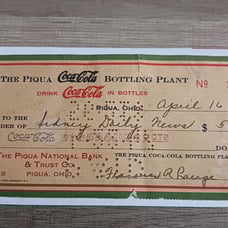 THE PIQUA Coca-Cola BOTTLING PLANT
DRINK Coca-Cola IN BOTTLES
No
PIQUA, OHIO, April 16
TO THE
ORDER OF Sidney Daily News $ 5
Coca-Cola
DO
THE PIQUA NATIONAL BANK
THE PIQUA COCA-COLA BOTTLING PLA
& TRUST CO.
PIQUA, OHIO.